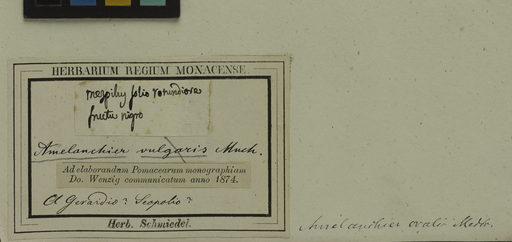 HERBARIUM REGIUM MONACENSE.
mespilus folio rotundiore
fructu nigro
Amelanchier vulgaris Mnch.
Ad elaborandam Pomacearum monographiam
Do. Wenzig communicatum anno 1874.
Cl Gerardis? Scopolio?
Herb. Schmiedel.
Amelanchier ovalis Medik.